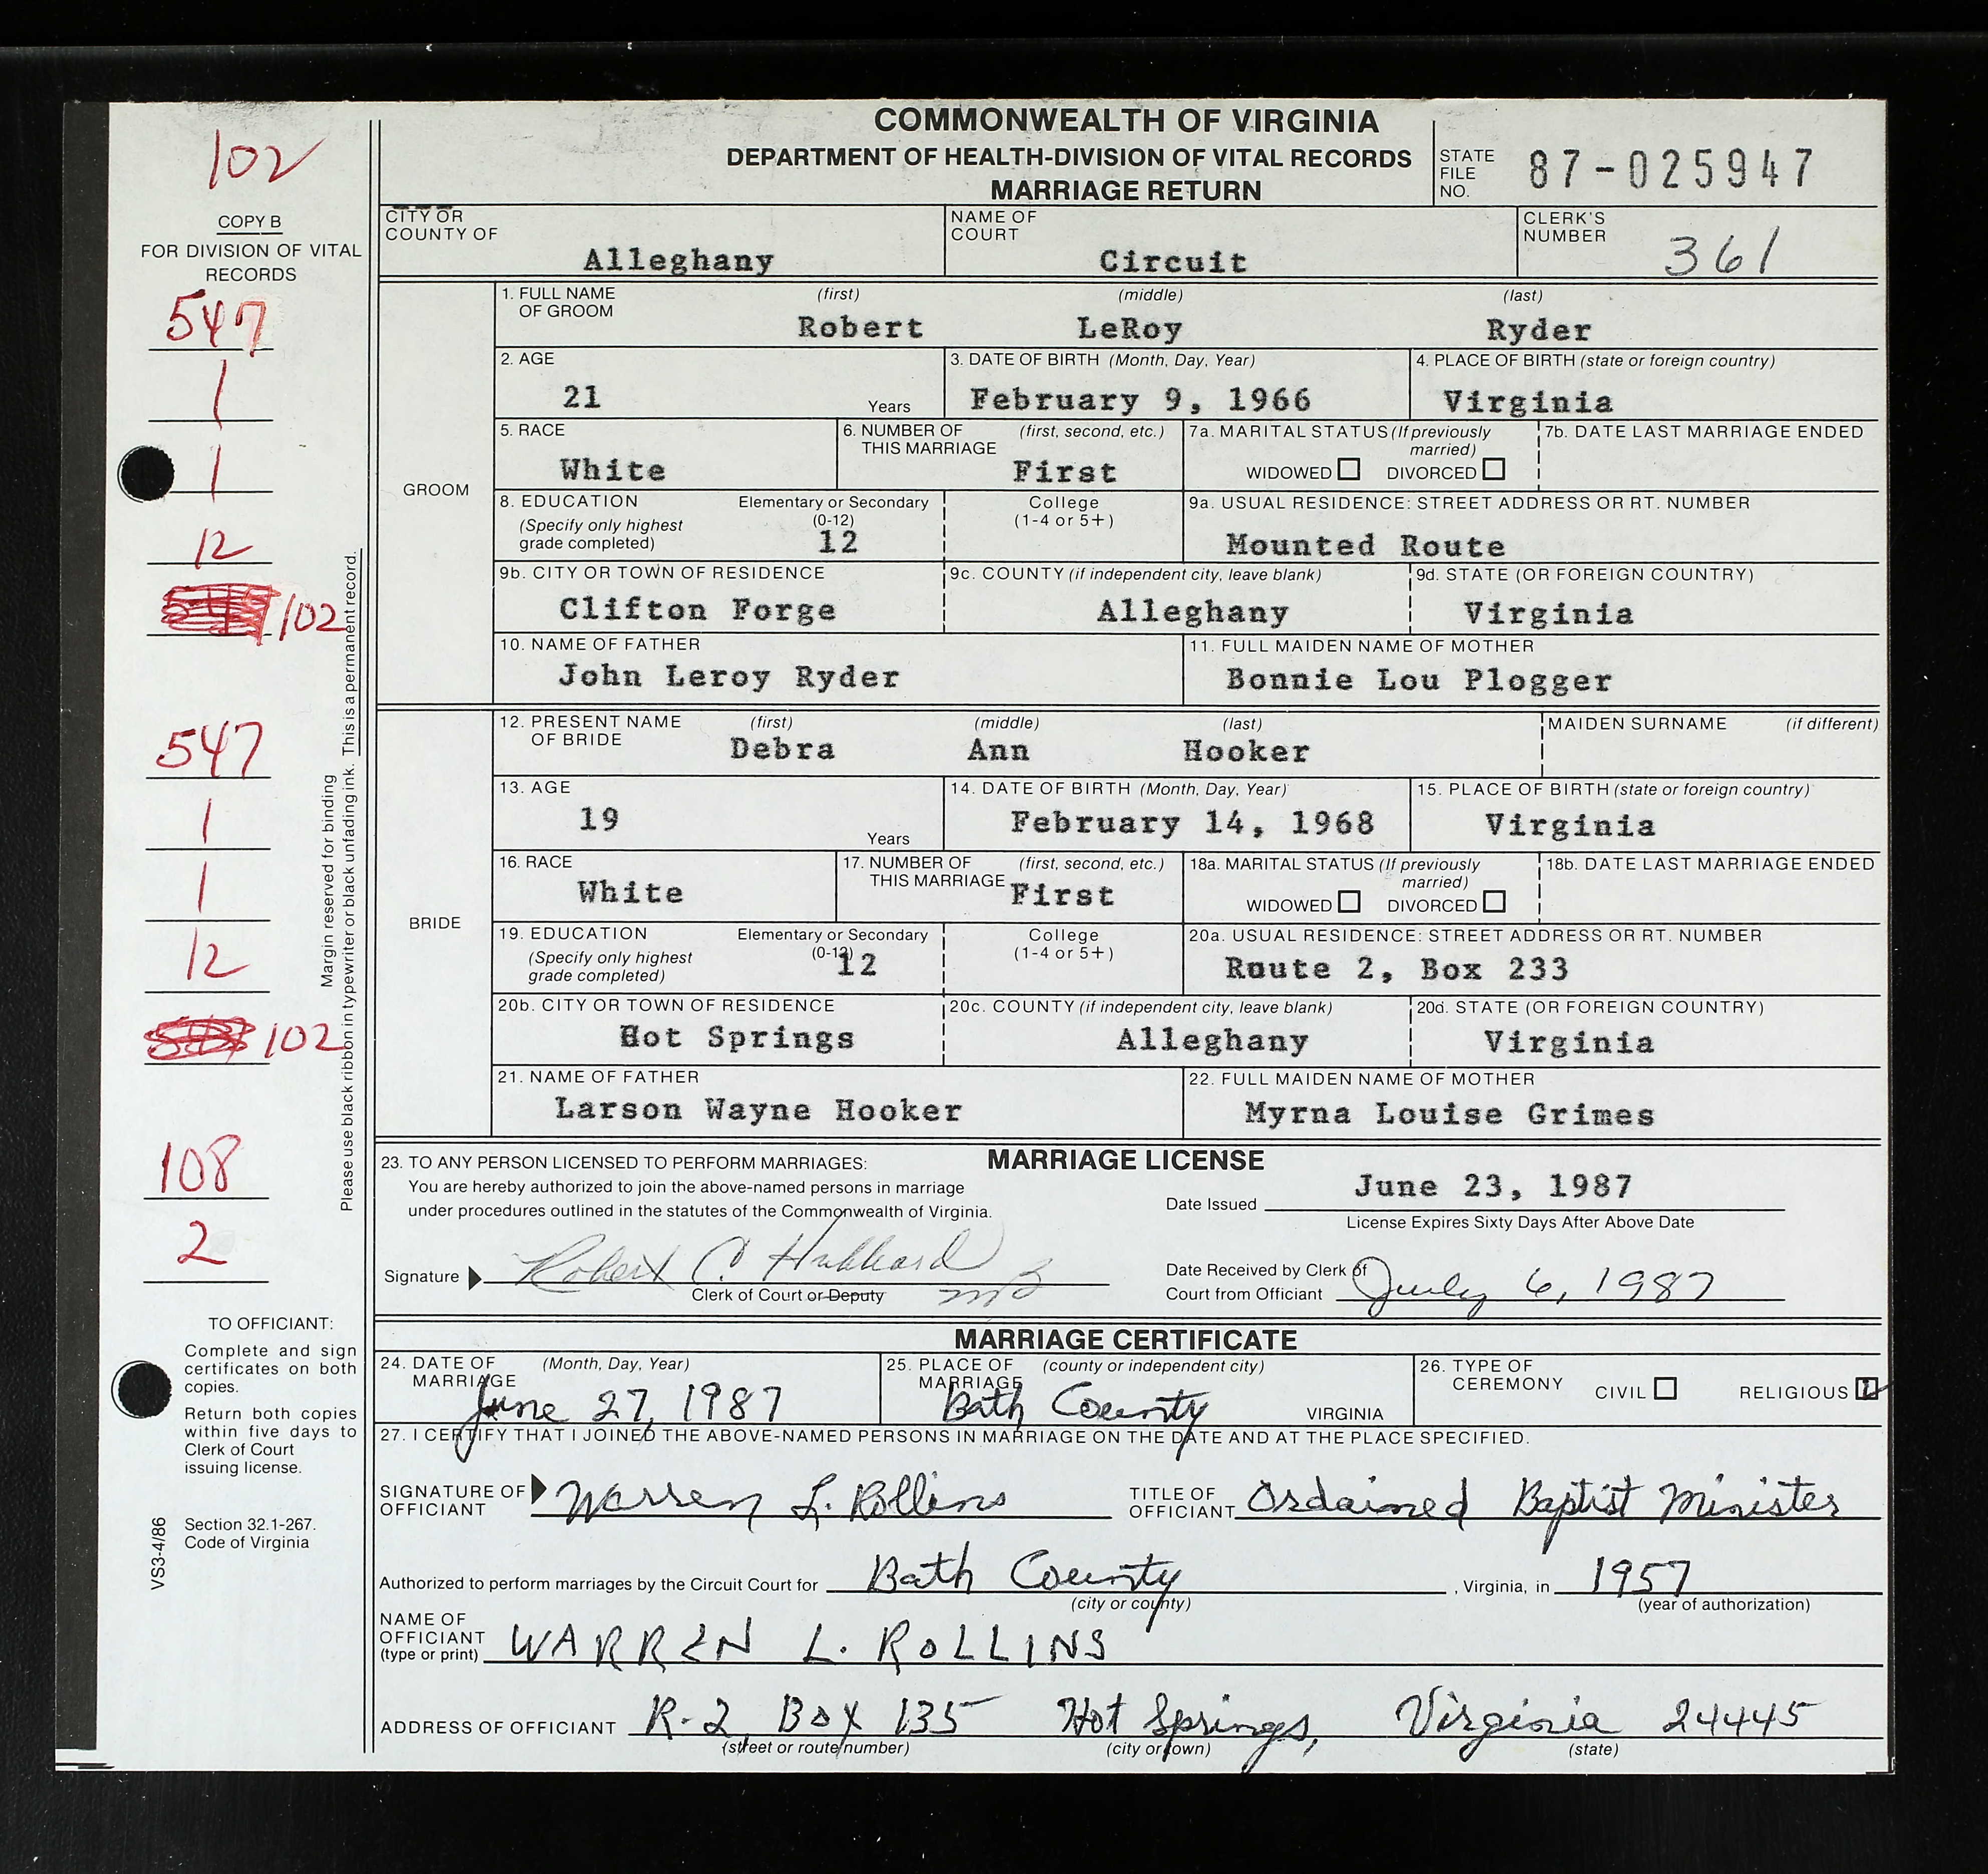 COMMONWEALTH OF VIRGINIA
DEPARTMENT OF HEALTH-DIVISION OF VITAL RECORDS
MARRIAGE RETURN
STATE FILE NO. 87-025947
102
COPY B
FOR DIVISION OF VITAL RECORDS
547
1
1
12
102
547
1
1
12
102
108
2
Margin reserved for binding
Please use black ribbon in typewriter or black unfading ink. This is a permanent record.
TO OFFICIANT:
Complete and sign
certificates on both
copies.
Return both copies
within five days to
Clerk of Court
issuing license.
Section 32.1-267.
Code of Virginia
VS3-4/86
CITY OR COUNTY OF Alleghany
NAME OF COURT Circuit
CLERK'S NUMBER 361
GROOM
1. FULL NAME OF GROOM (first) Robert (middle) LeRoy (last) Ryder
2. AGE 21 Years
3. DATE OF BIRTH (Month, Day, Year) February 9, 1966
4. PLACE OF BIRTH (state or foreign country) Virginia
5. RACE White
6. NUMBER OF THIS MARRIAGE (first, second, etc.) First
7a. MARITAL STATUS (If previously married) WIDOWED DIVORCED
7b. DATE LAST MARRIAGE ENDED
8. EDUCATION (Specify only highest grade completed) Elementary or Secondary (0-12) 12 College (1-4 or 5+)
9a. USUAL RESIDENCE: STREET ADDRESS OR RT. NUMBER Mounted Route
9b. CITY OR TOWN OF RESIDENCE Clifton Forge
9c. COUNTY (if independent city, leave blank) Alleghany
9d. STATE (OR FOREIGN COUNTRY) Virginia
10. NAME OF FATHER John Leroy Ryder
11. FULL MAIDEN NAME OF MOTHER Bonnie Lou Plogger
BRIDE
12. PRESENT NAME OF BRIDE (first) Debra (middle) Ann (last) Hooker
MAIDEN SURNAME (if different)
13. AGE 19 Years
14. DATE OF BIRTH (Month, Day, Year) February 14, 1968
15. PLACE OF BIRTH (state or foreign country) Virginia
16. RACE White
17. NUMBER OF THIS MARRIAGE (first, second, etc.) First
18a. MARITAL STATUS (If previously married) WIDOWED DIVORCED
18b. DATE LAST MARRIAGE ENDED
19. EDUCATION (Specify only highest grade completed) Elementary or Secondary (0-12) 12 College (1-4 or 5+)
20a. USUAL RESIDENCE: STREET ADDRESS OR RT. NUMBER Route 2, Box 233
20b. CITY OR TOWN OF RESIDENCE Hot Springs
20c. COUNTY (if independent city, leave blank) Alleghany
20d. STATE (OR FOREIGN COUNTRY) Virginia
21. NAME OF FATHER Larson Wayne Hooker
22. FULL MAIDEN NAME OF MOTHER Myrna Louise Grimes
MARRIAGE LICENSE
23. TO ANY PERSON LICENSED TO PERFORM MARRIAGES:
You are hereby authorized to join the above-named persons in marriage
under procedures outlined in the statutes of the Commonwealth of Virginia.
Date Issued June 23, 1987
License Expires Sixty Days After Above Date
Signature Robert C. Hubbard
Clerk of Court or Deputy
Date Received by Clerk of Court from Officiant July 6, 1987
MARRIAGE CERTIFICATE
24. DATE OF MARRIAGE (Month, Day, Year) June 27, 1987
25. PLACE OF MARRIAGE (county or independent city) Bath County VIRGINIA
26. TYPE OF CEREMONY CIVIL RELIGIOUS
27. I CERTIFY THAT I JOINED THE ABOVE-NAMED PERSONS IN MARRIAGE ON THE DATE AND AT THE PLACE SPECIFIED.
SIGNATURE OF OFFICIANT Warren L. Rollins
TITLE OF OFFICIANT Ordained Baptist Minister
Authorized to perform marriages by the Circuit Court for Bath County, Virginia, in 1957
(city or county) (year of authorization)
NAME OF OFFICIANT (type or print) WARREN L. ROLLINS
ADDRESS OF OFFICIANT R-2 Box 135 Hot Springs, Virginia 24445
(street or route number) (city or town) (state)